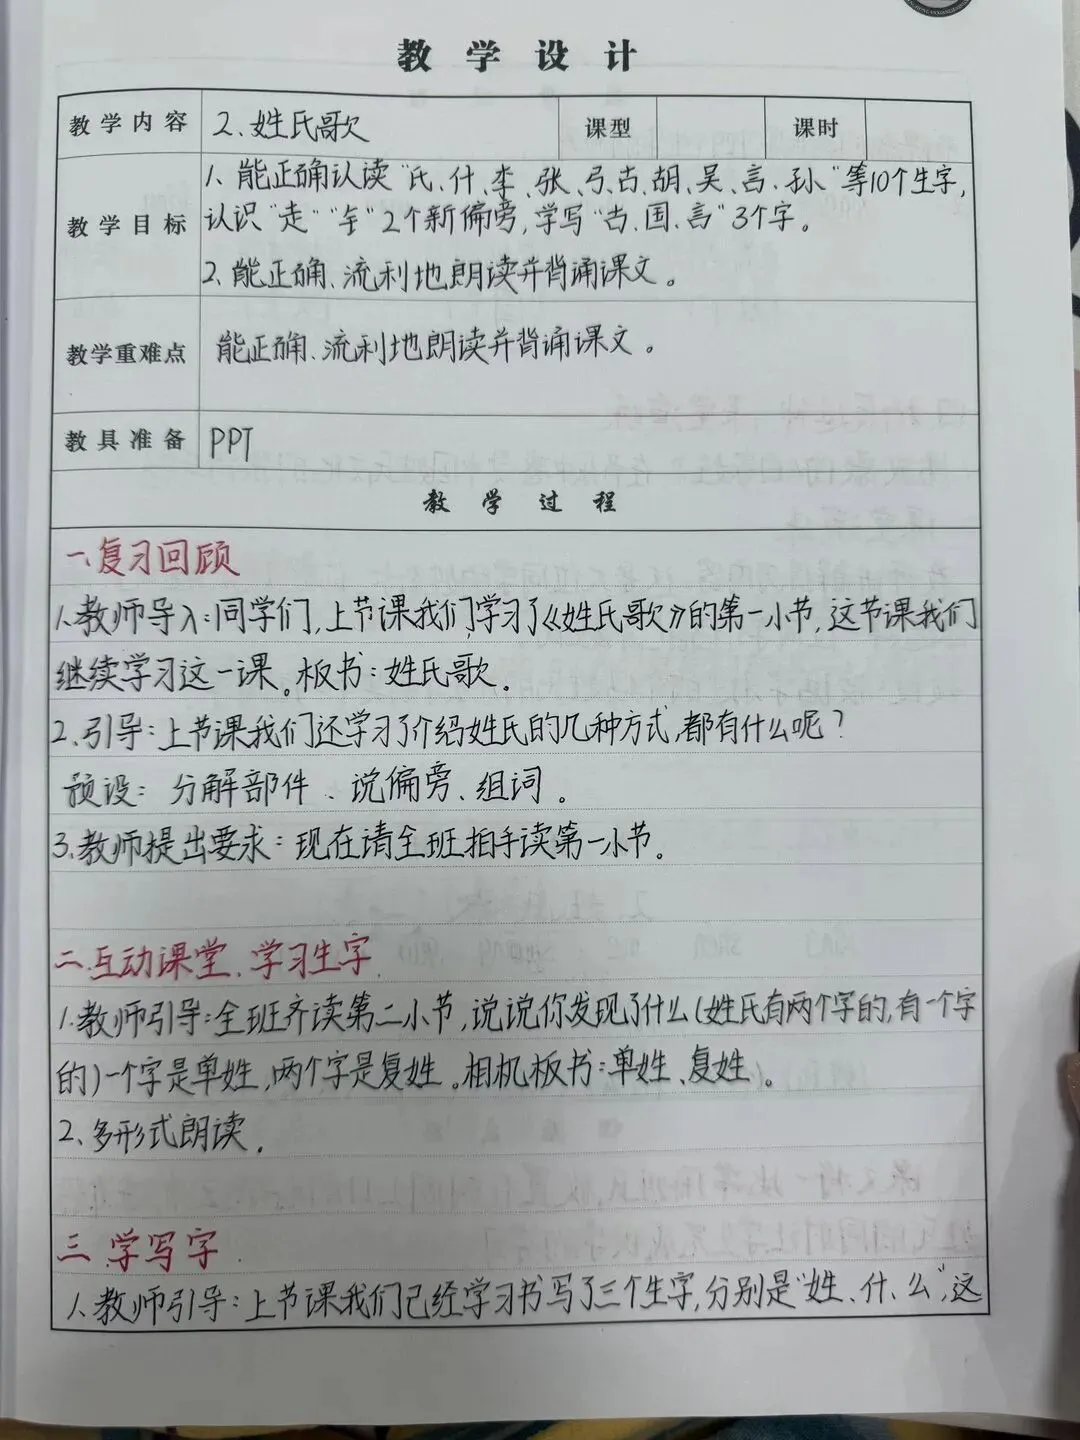 教学设计
教学内容 2、姓氏歌 课型 课时
教学目标
1、能正确认读“氏、什、李、张、弓、古、胡、吴、言、孙”等10个生字,
认识“走”“钅”2个新偏旁,学写“古、国、言”3个字。
2、能正确、流利地朗读并背诵课文。
教学重难点 能正确、流利地朗读并背诵课文。
教具准备 PPT
教学过程
一、复习回顾
1、教师导入:同学们,上节课我们学习了《姓氏歌》的第一小节,这节课我们
继续学习这一课。板书:姓氏歌。
2、引导:上节课我们还学习了介绍姓氏的几种方式,都有什么呢?
预设:分解部件、说偏旁、组词。
3、教师提出要求:现在请全班拍手读第一小节。
二、互动课堂、学习生字
1、教师引导:全班齐读第二小节,说说你发现了什么(姓氏有两个字的,有一个字
的)一个字是单姓,两个字是复姓。相机板书:单姓、复姓。
2、多形式朗读。
三、学写字
1、教师引导:上节课我们已经学习书写了三个生字,分别是“姓、什、么”,这